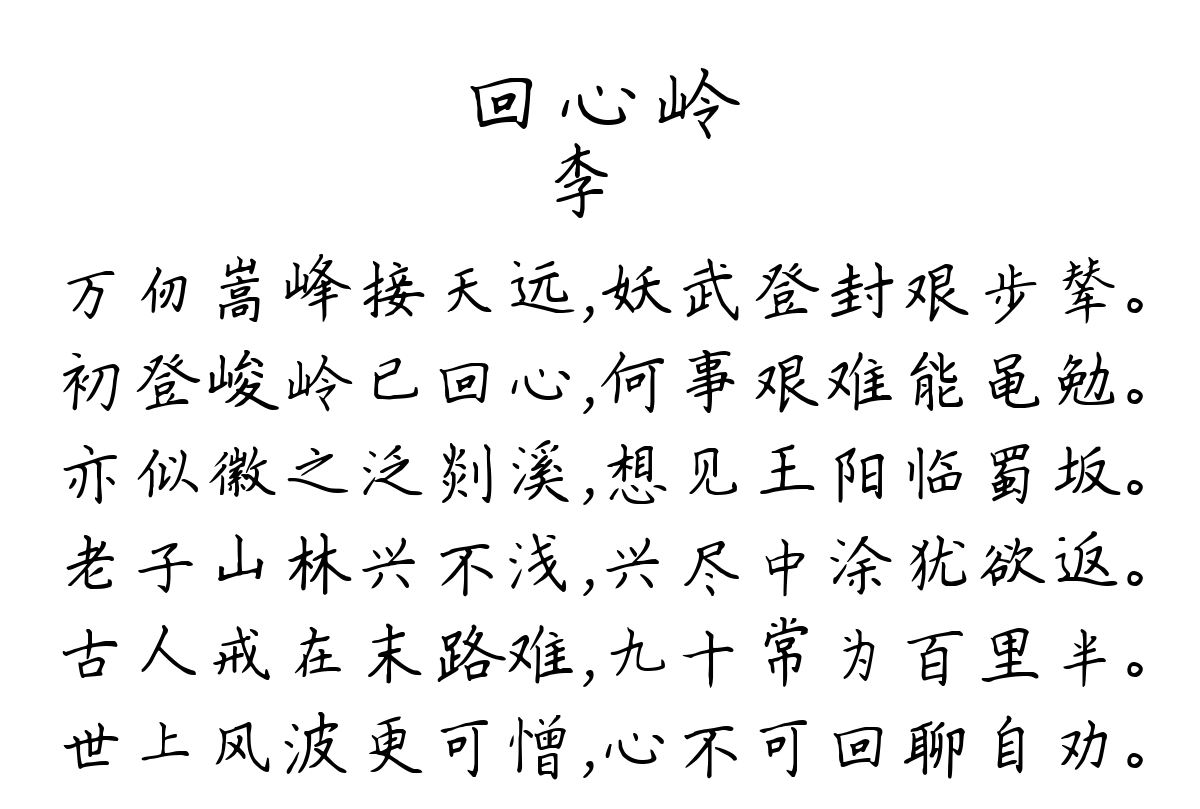 回心岭
李
万仞嵩峰接天远,妖武登封艰步辇。
初登峻岭已回心,何事艰难能黾勉。
亦似徽之泛剡溪,想见王阳临蜀坂。
老子山林兴不浅,兴尽中涂犹欲返。
古人戒在末路难,九十常为百里半。
世上风波更可憎,心不可回聊自劝。